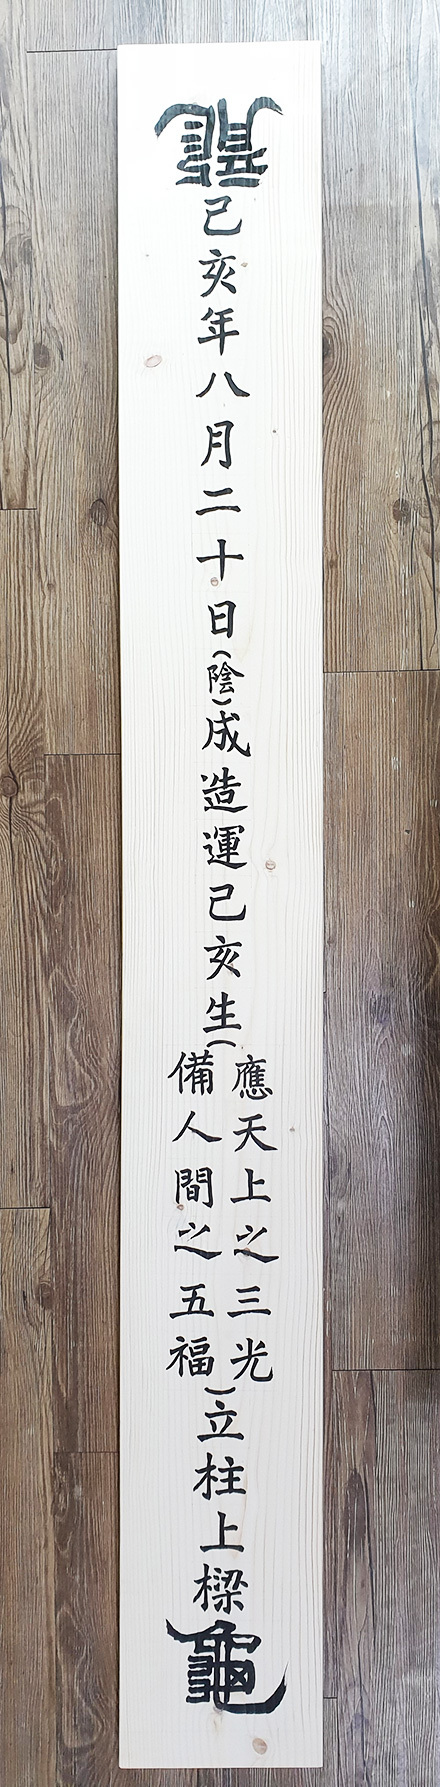 龍
己亥年八月二十日(陰)成造運己亥生(
應天上之三光
備人間之五福
)立柱上樑
龜